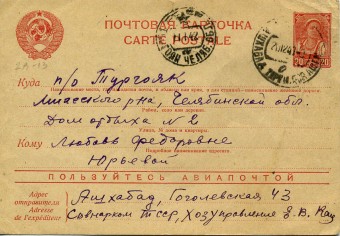 ПОЧТОВАЯ КАРТОЧКА
CARTE POSTALE
20 20
Куда п/о Тургояк
Миасского р-на, Челябинской обл.
Дом отдыха № 2
Улица, № дома и квартиры
Кому Любовь Федоровне
Подробное наименование адресата
Юрьевой
ПОЛЬЗУЙТЕСЬ АВИАПОЧТОЙ
Адрес отправителя
Adresse de l'expéditeur
Ашхабад, Гоголевская 43
Совнарком ТССР, Хозуправление Е. В.